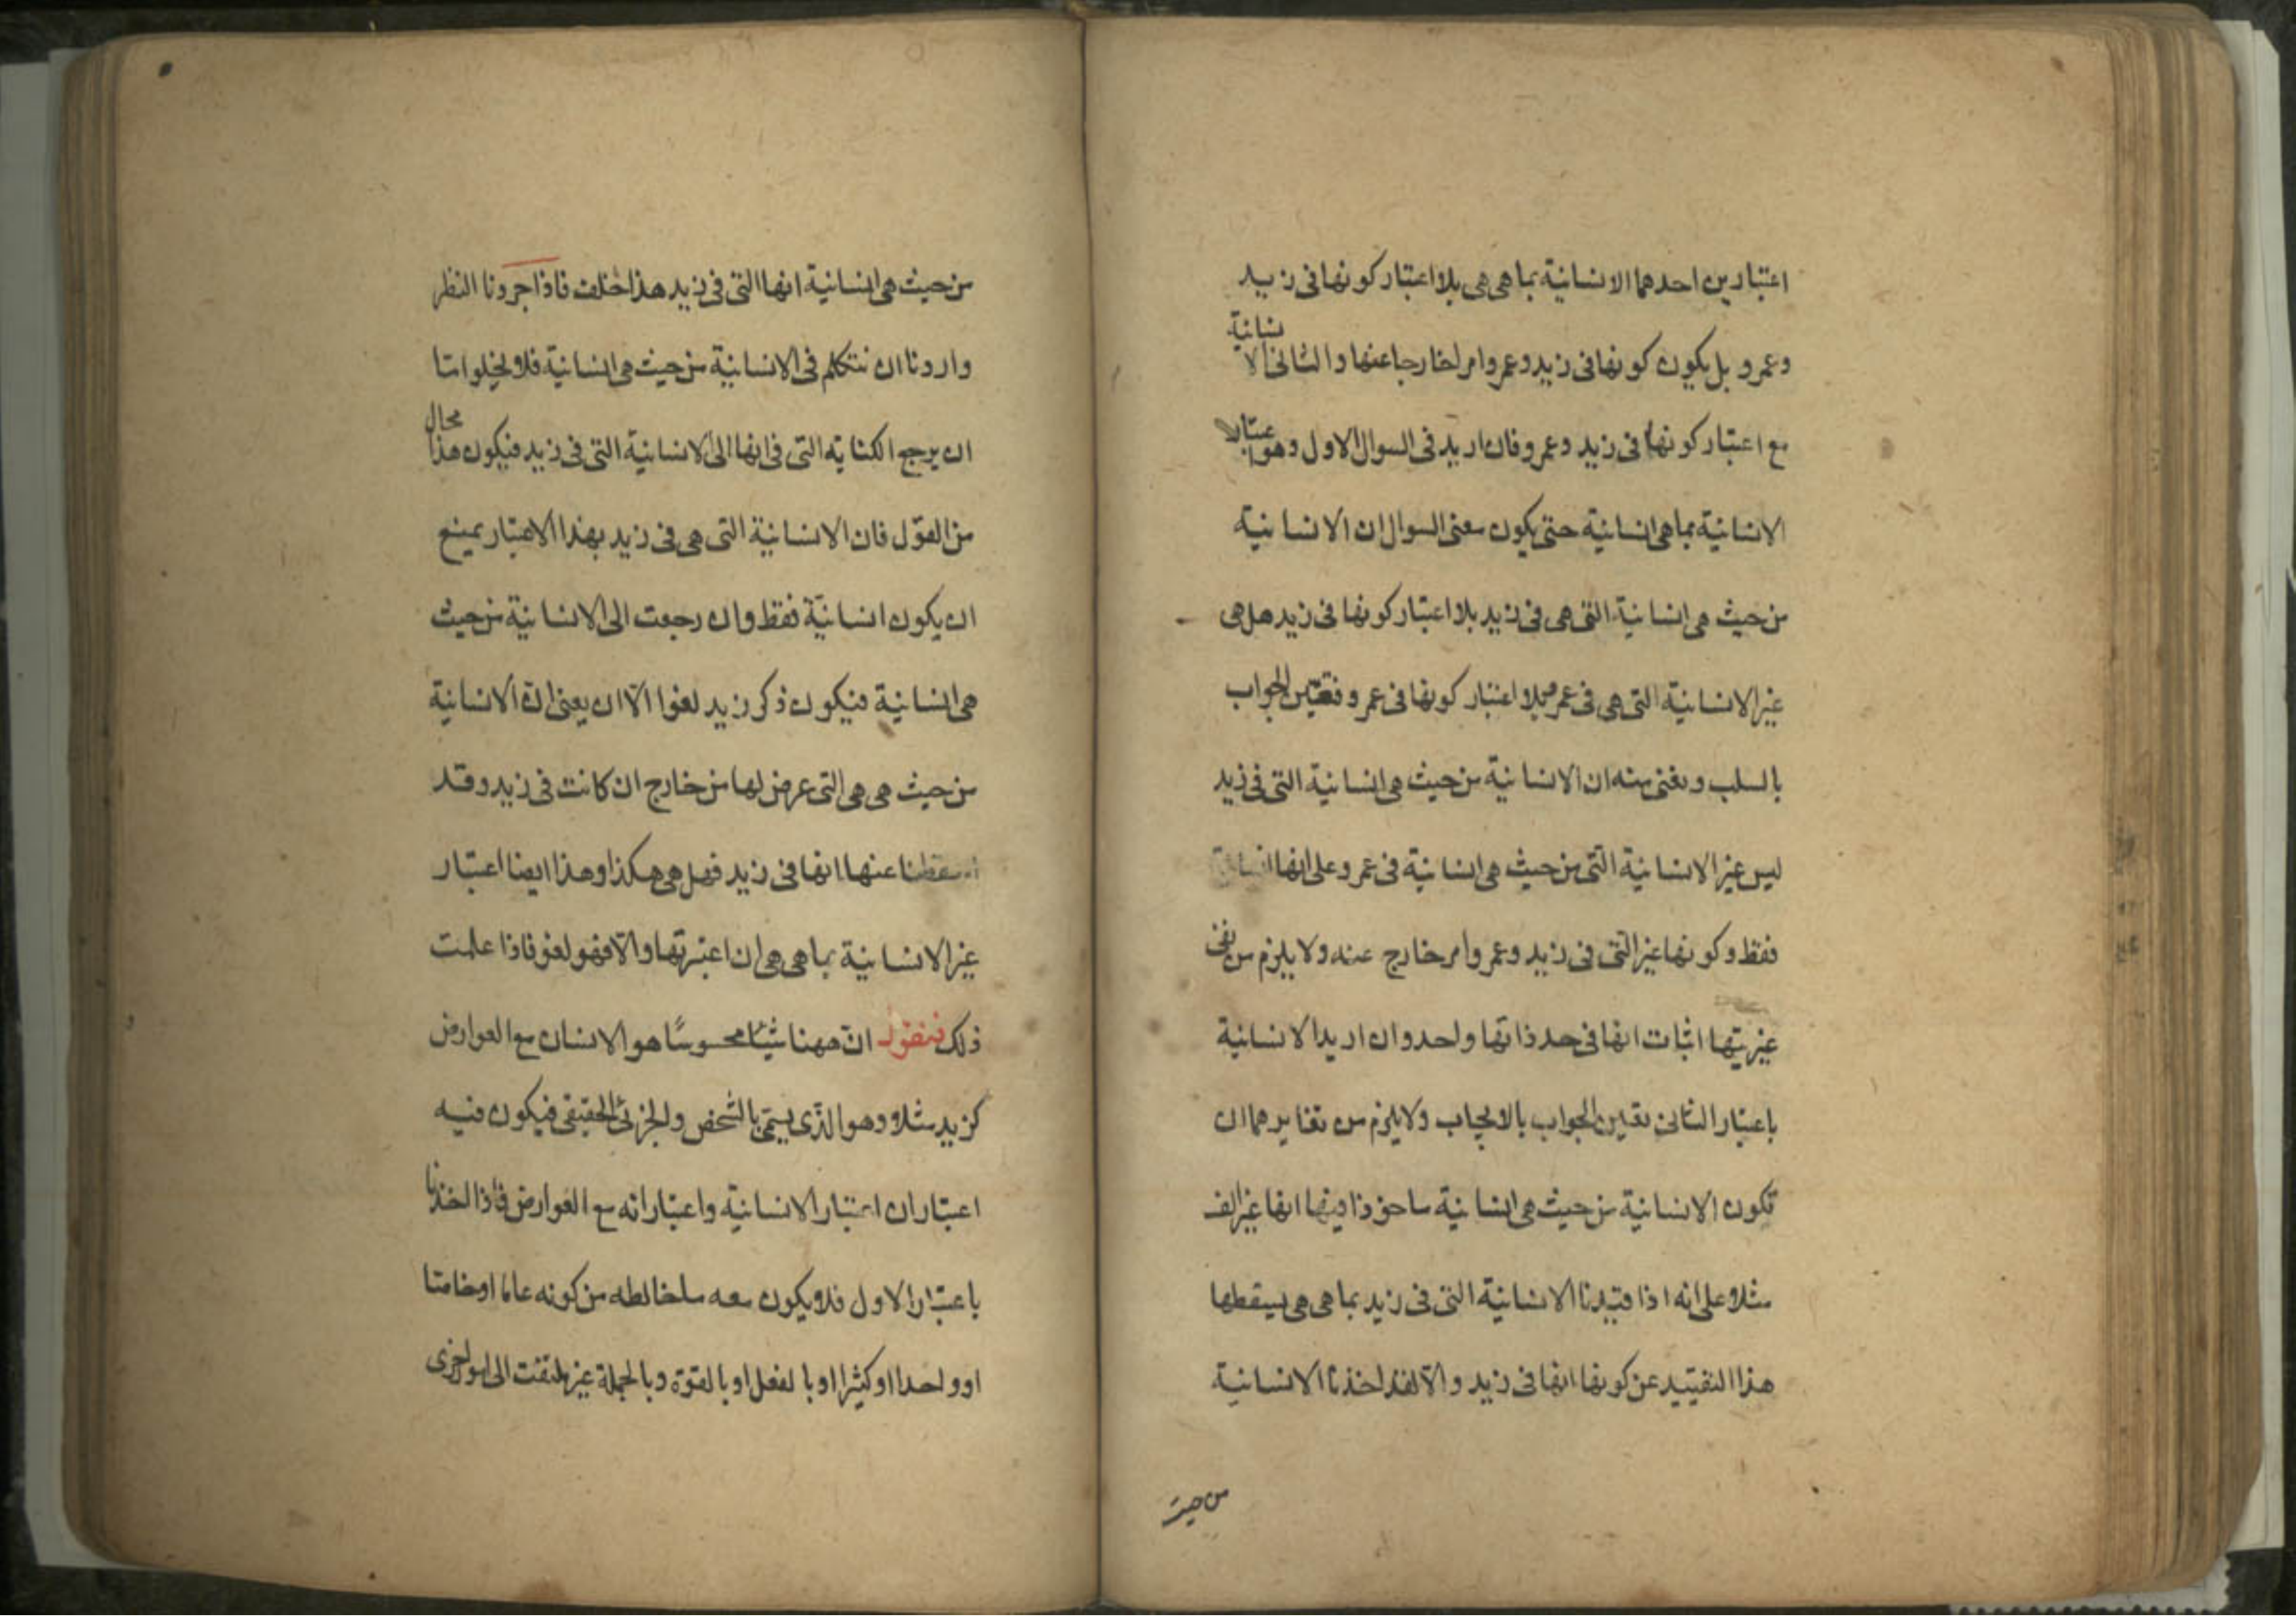 اعتبارين احدهما الانسانية بما هى هى بلا اعتبار كونها فى زيد
وعمرو بل يكون كونها فى زيد وعمرو امرا خارجا عنها والثانى الانسانية
مع اعتبار كونها فى زيد وعمرو فان اريد فى السوال الاول وهو اعتبار
الانسانية بما هى انسانية حتى يكون معنى السوال ان الانسانية
من حيث هى انسانية التى هى فى زيد بلا اعتبار كونها فى زيد هل هى
غير الانسانية التى هى فى عمرو بلا اعتبار كونها فى عمرو فتعين الجواب
بالسلب ونعنى منه ان الانسانية من حيث هى انسانية التى فى زيد
ليس غير الانسانية التى من حيث هى انسانية فى عمرو وعلى انها انسانية
فقط وكونها غير التى فى زيد وعمرو امر خارج عنه ولا يلزم من نفى
غيريتها اثبات انها فى حد ذاتها واحد وان اريد الانسانية
باعتبار الثانى تعين الجواب بالايجاب ولا يلزم من تغايرهما ان
تكون الانسانية من حيث هى انسانية ماخوذا فيها انها غير الف
مثلا على انه اذا قيدنا الانسانية التى فى زيد بما هى هى يسقطها
هذا التقييد عن كونها انها فى زيد والا لقد اخذنا الانسانية
من حيث
من حيث هى انسانية انها التى فى زيد هذا خلف فاذا جردنا النظر
واردنا ان نتكلم فى الانسانية من حيث هى انسانية فلا يخلو اما
ان يرجع الكناية التى فى انها الى الانسانية التى فى زيد فيكون هذا محال
من القول فان الانسانية التى هى فى زيد بهذا الاعتبار يمتنع
ان يكون انسانية فقط وان رجعت الى الانسانية من حيث
هى انسانية فيكون ذكر زيد لغوا الا ان يعنى ان الانسانية
من حيث هى هى التى عرض لها من خارج ان كانت فى زيد وقد
اسقطنا عنها انها فى زيد فهل هى هكذا وهذا ايضا اعتبار
غير الانسانية بما هى هى ان اعتبرتها والا فهو لغو فاذا علمت
ذلك فنقول ان ههنا شيئا محسوسا هو الانسان مع العوارض
كزيد مثلا وهو الذى يسمى بالشخص والجزئى الحقيقى فيكون فيه
اعتباران اعتبار الانسانية واعتبار انه مع العوارض فاذا اخذنا
باعتبار الاول فلا يكون معه ما خالطه من كونه عاما او خاصا
او واحدا او كثيرا او بالفعل او بالقوة وبالجملة غير ملتفت الى امور اخرى